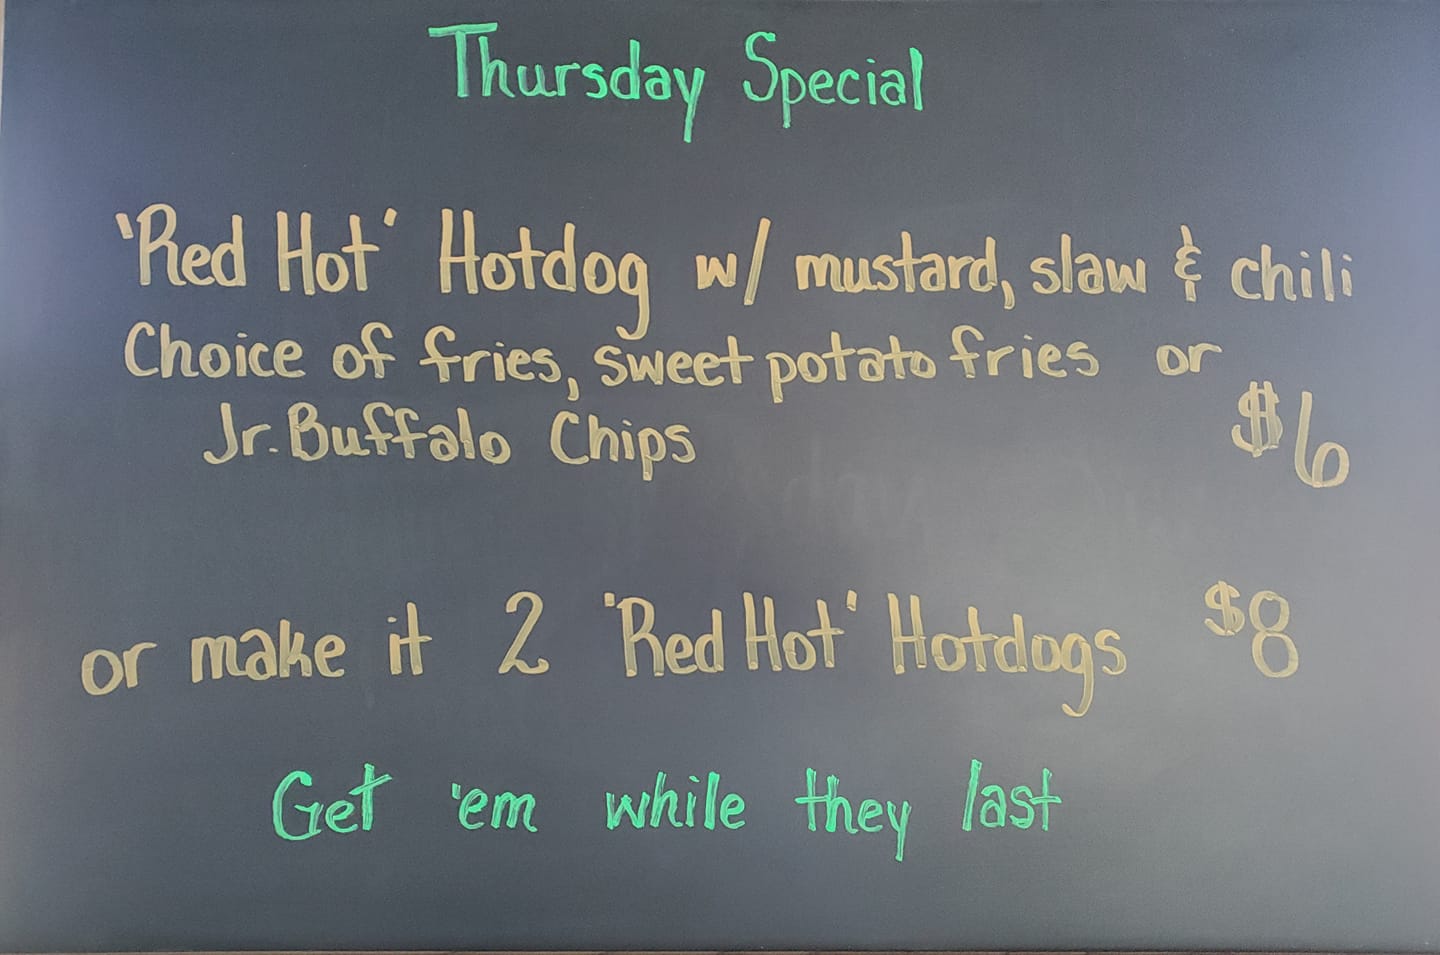 Thursday Special
'Red Hot' Hotdog w/ mustard, slaw & chili
Choice of fries, sweet potato fries or
Jr. Buffalo Chips $6
or make it 2 'Red Hot' Hotdogs $8
Get 'em while they last